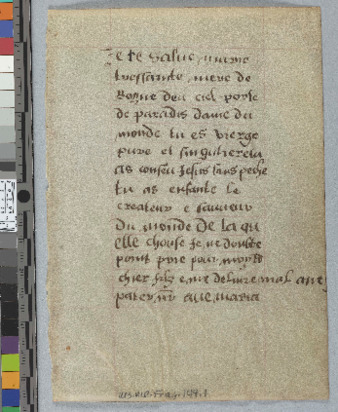 Je te salue, marie
tressainte, mere de
Royne deu ciel porte
de paradis dame du
monde tu es vierge
pure et singuliere tu
as conseu Jesus sans peche
tu as enfante le
createur e sauveur
du monde De la qu
elle chouse je ne doubte
point prie pour moy to
cher filz e me delivre mal ame
pater nr aue maria